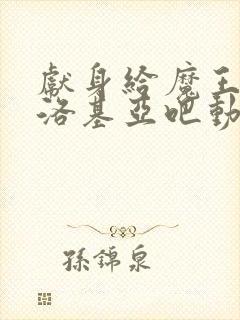 獻身給魔王
洛基亞吧動
孫錦泉